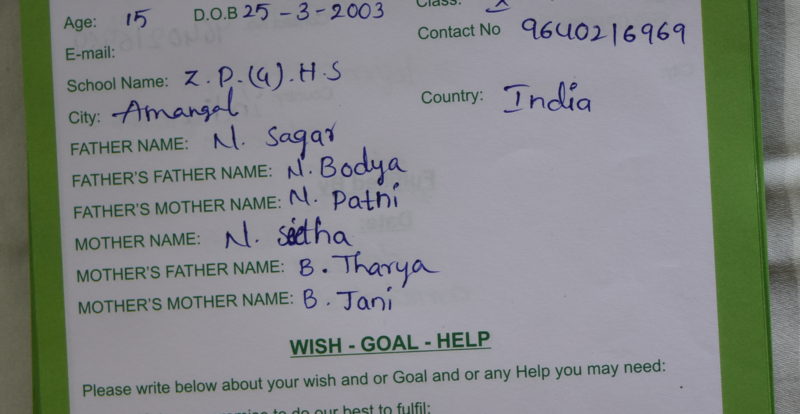 Age: 15 D.O.B 25-3-2003 Class: X
E-mail: Contact No 9640216969
School Name: Z.P.(G).H.S
City: Amangal Country: India
FATHER NAME: N. Sagar
FATHER'S FATHER NAME: N. Bodya
FATHER'S MOTHER NAME: N. Patni
MOTHER NAME: N. Seetha
MOTHER'S FATHER NAME: B. Tharya
MOTHER'S MOTHER NAME: B. Jani
WISH - GOAL - HELP
Please write below about your wish and or Goal and or any Help you may need:
to do our best to fulfil: